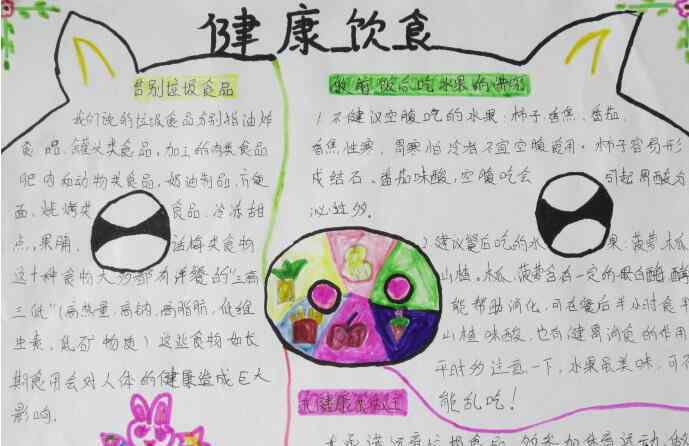 健康饮食
告别垃圾食品
我们说的垃圾食品分别指油炸
食品、罐头类食品，加工的肉类食品
肥肉和动物类食品，奶油制品、方便
面、烧烤类食品、冷冻甜
点、果脯、话梅类食物
这十种食物大多都有洋餐的“三高
三低”(高热量、高钠、高脂肪、低维
生素、低矿物质）这些食物如长
期食用会对人体的健康造成巨大
影响.
饭前饭后吃水果的
1.不建议空腹吃的水果:柿子、香蕉、番茄,
香蕉性寒，胃寒怕冷者不宜空腹食用。柿子容易形
成结石、番茄味酸,空腹吃会引起胃酸分
泌过多.
2.建议餐后吃的水果:菠萝、木瓜、
山楂。木瓜、菠萝含有一定的蛋白酶,
能帮助消化,可在餐后半小时食
山楂味酸,也有健胃消食的作用
平时多注意一下,水果虽美味,可不
能乱吃!
健康